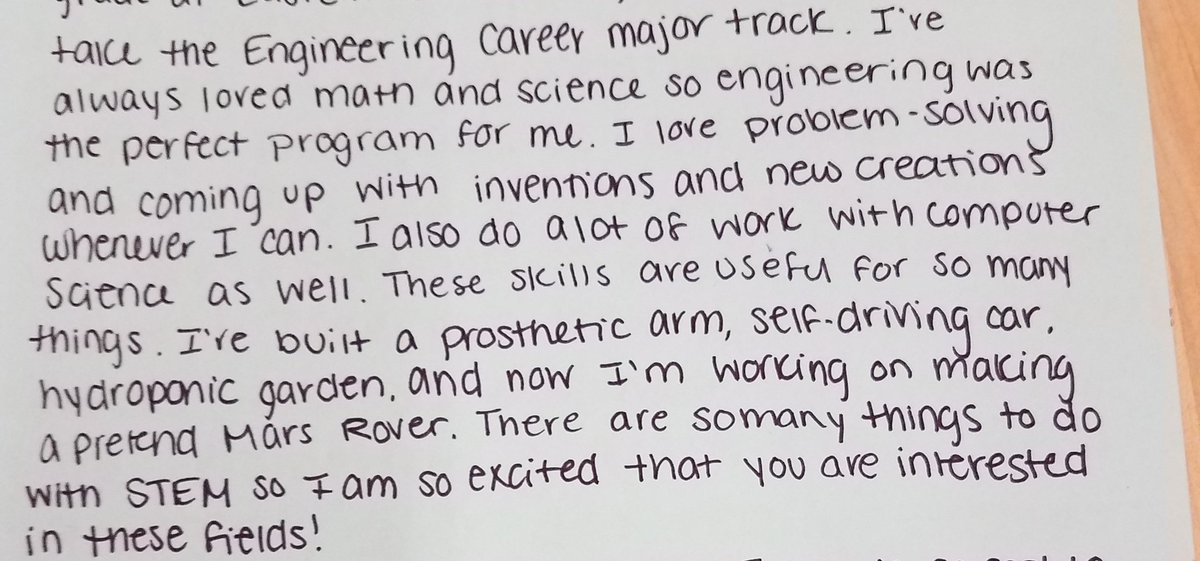 take the Engineering Career major track. I've
always loved math and science so engineering was
the perfect program for me. I love problem-solving
and coming up with inventions and new creations
whenever I can. I also do alot of work with computer
Science as well. These skills are useful for so many
things. I've built a prosthetic arm, self-driving car,
hydroponic garden, and now I'm working on making
a pretend Mars Rover. There are somany things to do
with STEM so I am so excited that you are interested
in these fields!